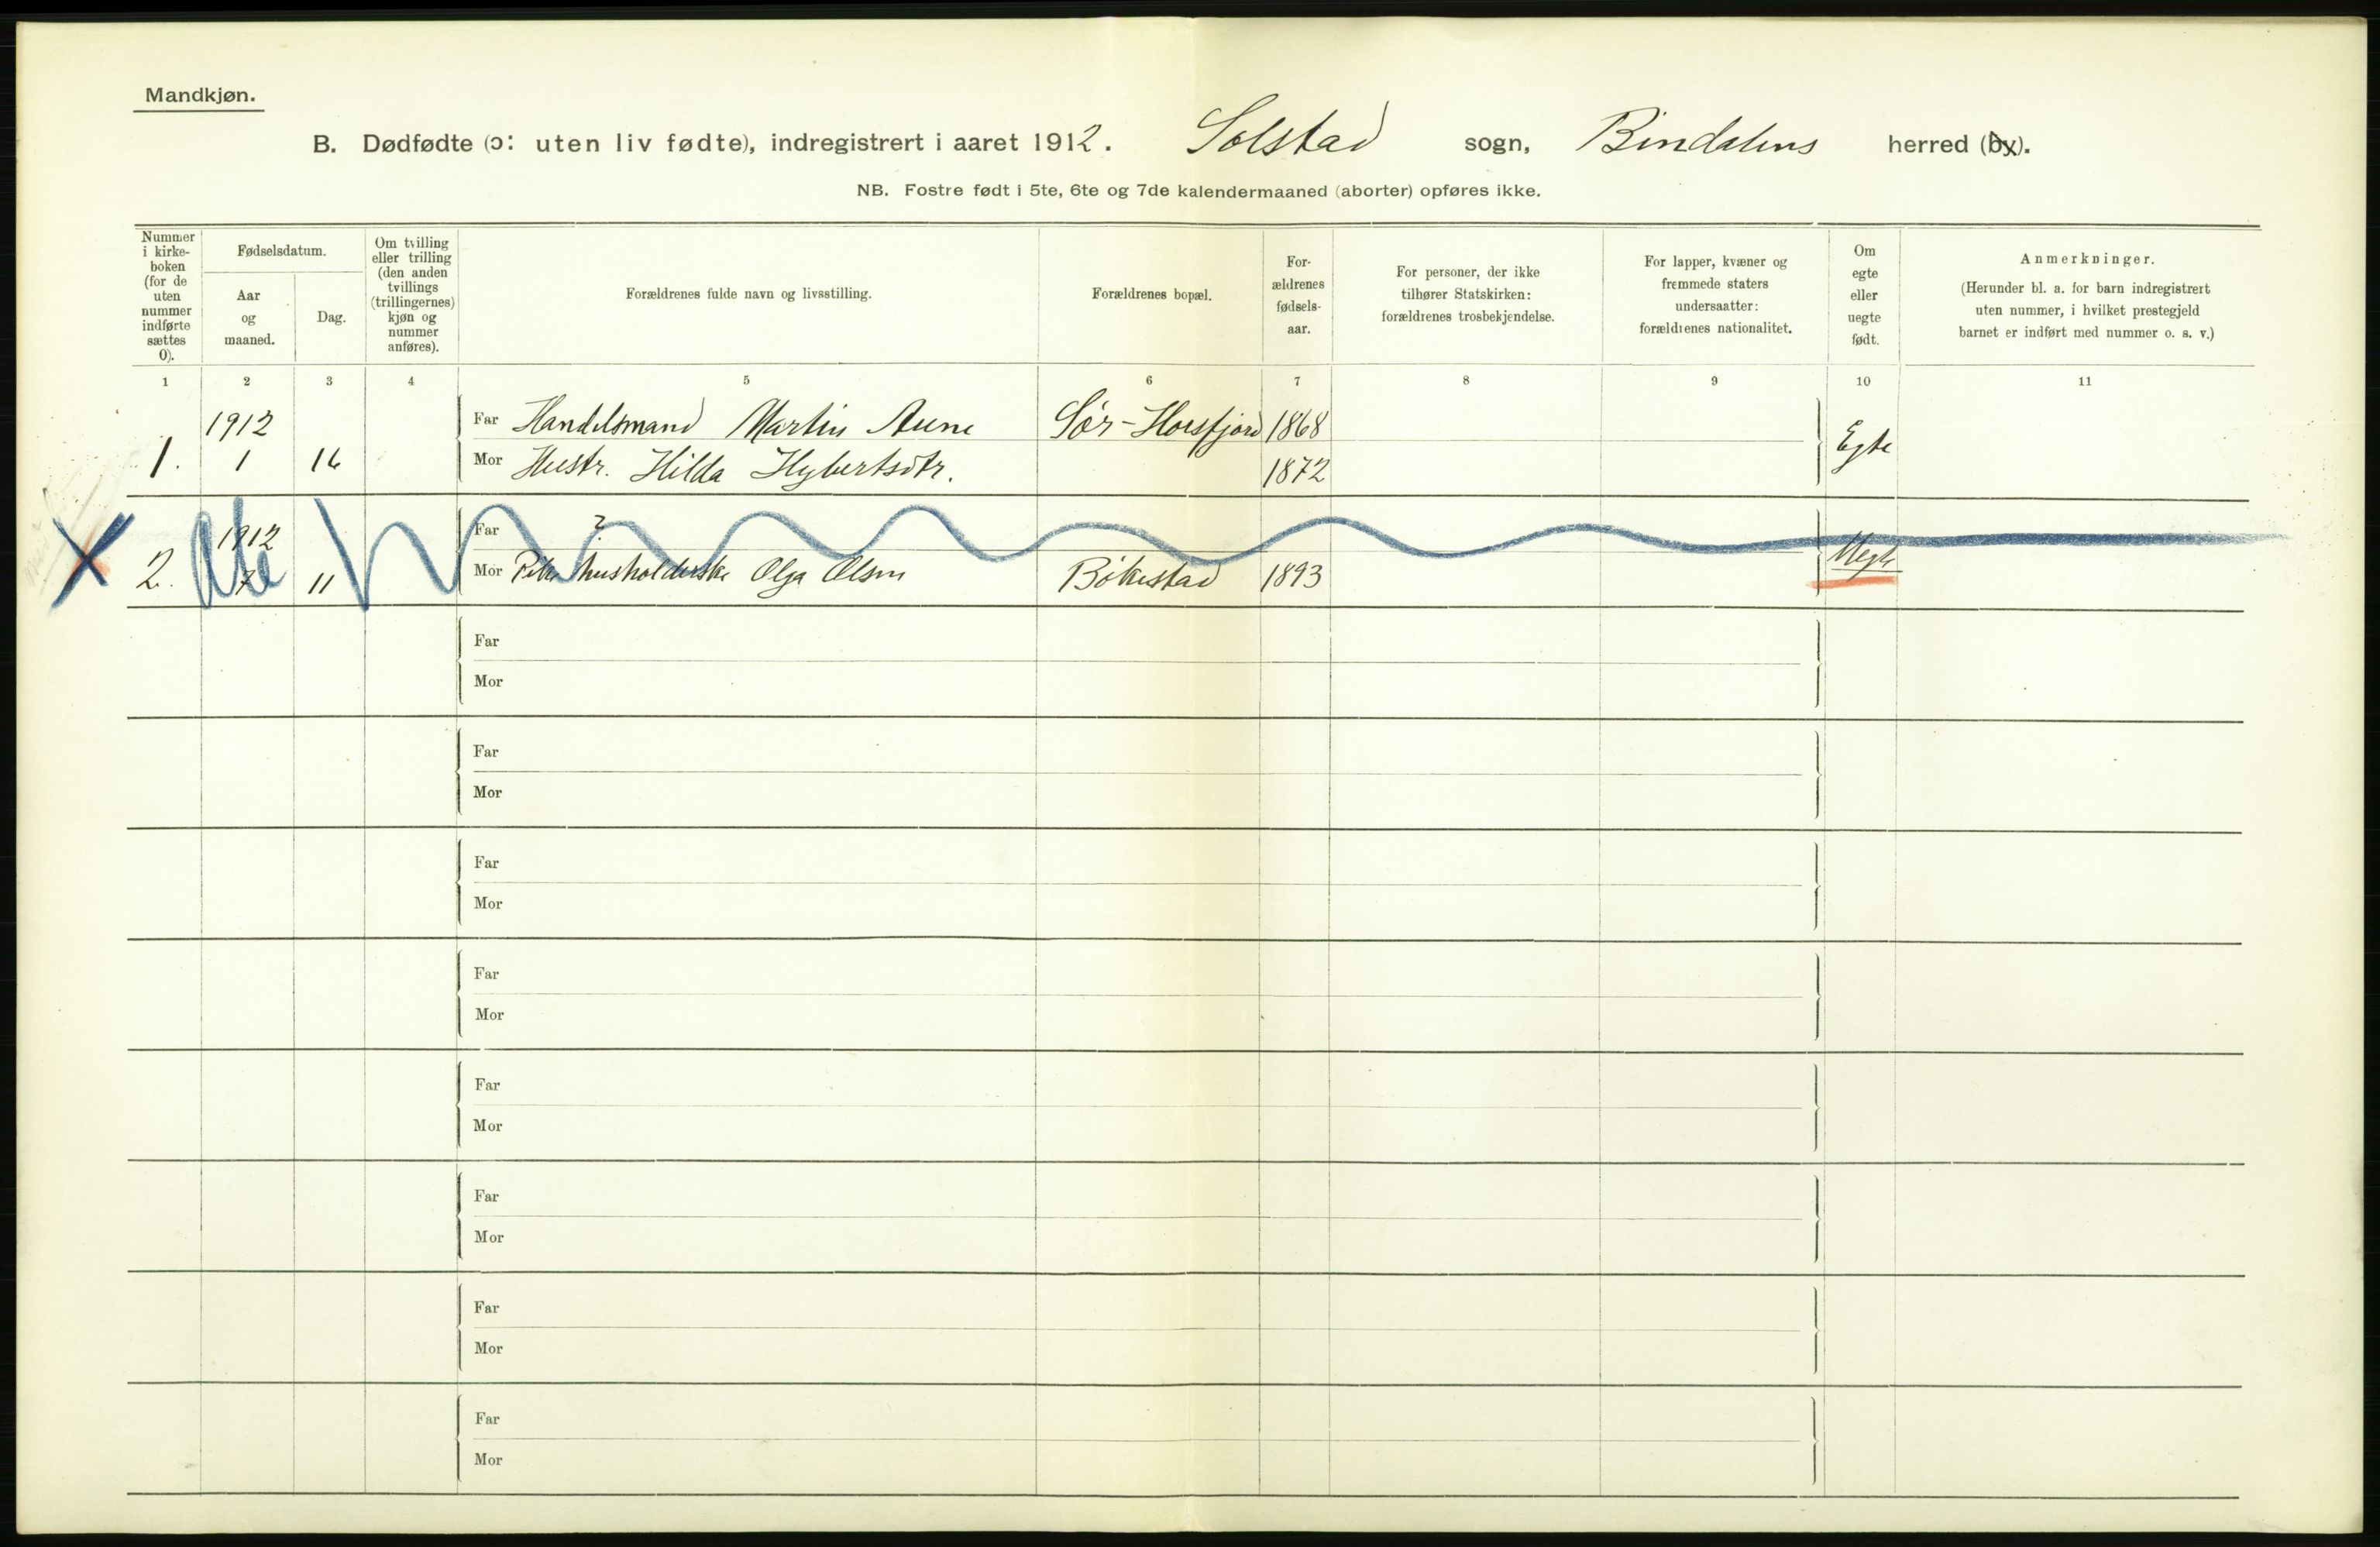 Mandkjøn.
B. Dødfødte (ɔ: uten liv fødte), indregistrert i aaret 1912. Solstad sogn, Bindalens herred (by).
NB. Fostre født i 5te, 6te og 7de kalendermaaned (aborter) opføres ikke.
Nummer i kirke-boken (for de uten nummer indførte sættes 0).
Fødselsdatum.
Aar og maaned.
Dag.
Om tvilling eller trilling (den anden tvillings (trillingernes) kjøn og nummer anføres).
Forældrenes fulde navn og livsstilling.
Forældrenes bopæl.
For-ældrenes fødsels-aar.
For personer, der ikke tilhører Statskirken: forældrenes trosbekjendelse.
For lapper, kvæner og fremmede staters undersaatter: forældrenes nationalitet.
Om egte eller uegte født.
Anmerkninger.
(Herunder bl. a. for barn indregistrert uten nummer, i hvilket prestegjeld barnet er indført med nummer o. s. v.)
1 2 3 4 5 6 7 8 9 10 11
1912 Far Handelsmand Martin Aune Sør-Horsfjord 1868 Egte
1. 1 16 Mor Hustr. Hilda Hybertsdtr. 1872
1912 Far ? Uegte
2. 7 11 Mor Pike husholderske Olga Olsen Bökestad 1893
Far
Mor
Far
Mor
Far
Mor
Far
Mor
Far
Mor
Far
Mor
Far
Mor
Far
Mor